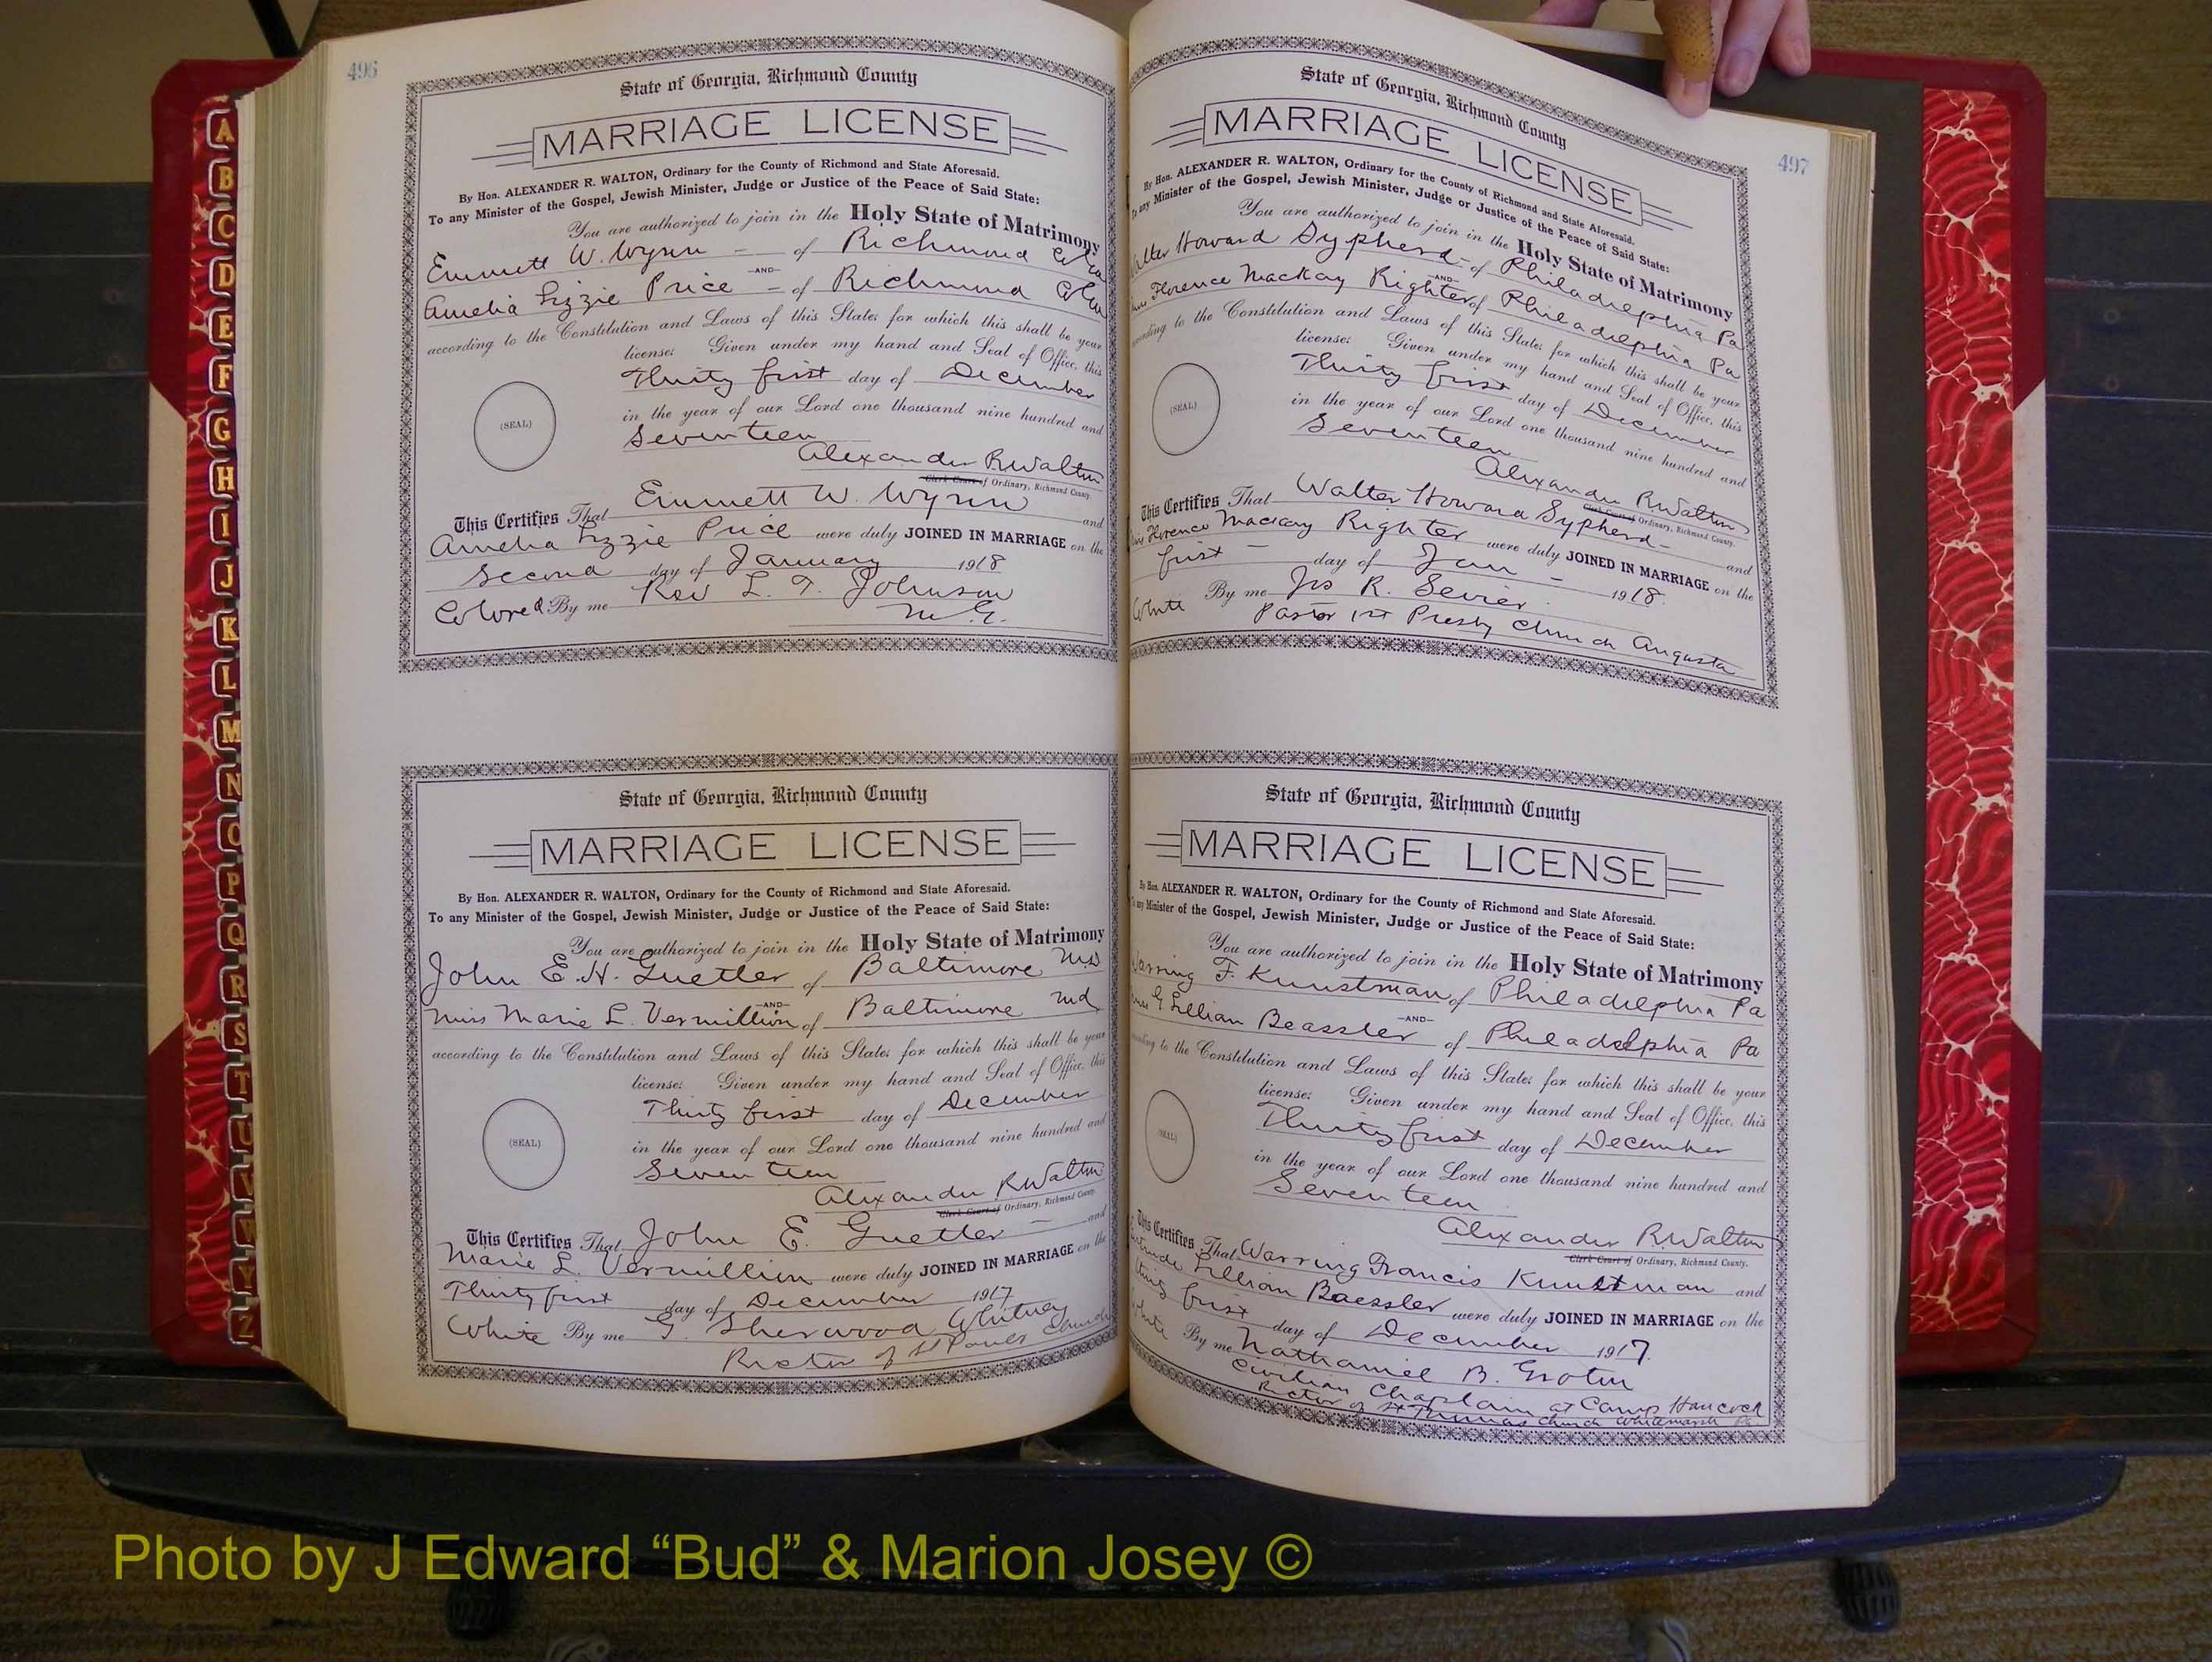 496
State of Georgia, Richmond County
MARRIAGE LICENSE
By Hon. ALEXANDER R. WALTON, Ordinary for the County of Richmond and State Aforesaid.
To any Minister of the Gospel, Jewish Minister, Judge or Justice of the Peace of Said State:
You are authorized to join in the Holy State of Matrimony
Emmett W. Wynn – of Richmond
—AND—
Amelia Lizzie Price – of Richmond
according to the Constitution and Laws of this State; for which this shall be your
license: Given under my hand and Seal of Office, this
Thirty first day of December
(SEAL)
in the year of our Lord one thousand nine hundred and
Seventeen
Alexander R Walton
Clerk Court of Ordinary, Richmond County.
This Certifies That Emmett W. Wynn and
Amelia Lizzie Price were duly JOINED IN MARRIAGE on the
Second day of January 1918
Colored By me Rev L. T. Johnson
M.G.
State of Georgia, Richmond County
MARRIAGE LICENSE
By Hon. ALEXANDER R. WALTON, Ordinary for the County of Richmond and State Aforesaid.
To any Minister of the Gospel, Jewish Minister, Judge or Justice of the Peace of Said State:
You are authorized to join in the Holy State of Matrimony
John E. H. Guetler of Baltimore Md
—AND—
Miss Marie L. Vermillion of Baltimore Md
according to the Constitution and Laws of this State; for which this shall be your
license: Given under my hand and Seal of Office, this
Thirty first day of December
(SEAL)
in the year of our Lord one thousand nine hundred and
Seventeen
Alexander R Walton
Clerk Court of Ordinary, Richmond County.
This Certifies That John E. Guetler – and
Marie L. Vermillion were duly JOINED IN MARRIAGE on the
Thirty first day of December 1917
White By me G. Sherwood Whitney
Rector of St Pauls Church
497
State of Georgia, Richmond County
MARRIAGE LICENSE
By Hon. ALEXANDER R. WALTON, Ordinary for the County of Richmond and State Aforesaid.
To any Minister of the Gospel, Jewish Minister, Judge or Justice of the Peace of Said State:
You are authorized to join in the Holy State of Matrimony
Walter Howard Sypherd – of Philadelphia Pa
—AND—
Florence Mackay Righter of Philadelphia Pa
according to the Constitution and Laws of this State; for which this shall be your
license: Given under my hand and Seal of Office, this
Thirty first day of December
(SEAL)
in the year of our Lord one thousand nine hundred and
Seventeen
Alexander R Walton
Clerk Court of Ordinary, Richmond County.
This Certifies That Walter Howard Sypherd – and
Florence Mackay Righter were duly JOINED IN MARRIAGE on the
first – day of Jan – 1918.
White By me Jno R. Sevier
Pastor 1st Presby Church Augusta
State of Georgia, Richmond County
MARRIAGE LICENSE
By Hon. ALEXANDER R. WALTON, Ordinary for the County of Richmond and State Aforesaid.
To any Minister of the Gospel, Jewish Minister, Judge or Justice of the Peace of Said State:
You are authorized to join in the Holy State of Matrimony
Warring F. Kunstman of Philadelphia Pa
—AND—
G Lillian Beassler of Philadelphia Pa
according to the Constitution and Laws of this State; for which this shall be your
license: Given under my hand and Seal of Office, this
Thirty first day of December
(SEAL)
in the year of our Lord one thousand nine hundred and
Seventeen
Alexander R. Walton
Clerk Court of Ordinary, Richmond County.
This Certifies That Warring Francis Kunstman and
Lillian Baessler were duly JOINED IN MARRIAGE on the
first day of December 1917.
White By me Nathaniel B. Groton
Civilian Chaplain at Camp Hancock
Rector of St Thomas Church Whitemarsh Pa
A
B
C
D
E
F
G
H
I
J
K
L
M
N
O
P
Q
R
S
T
U
V
W
Y
Z
Photo by J Edward “Bud” & Marion Josey ©